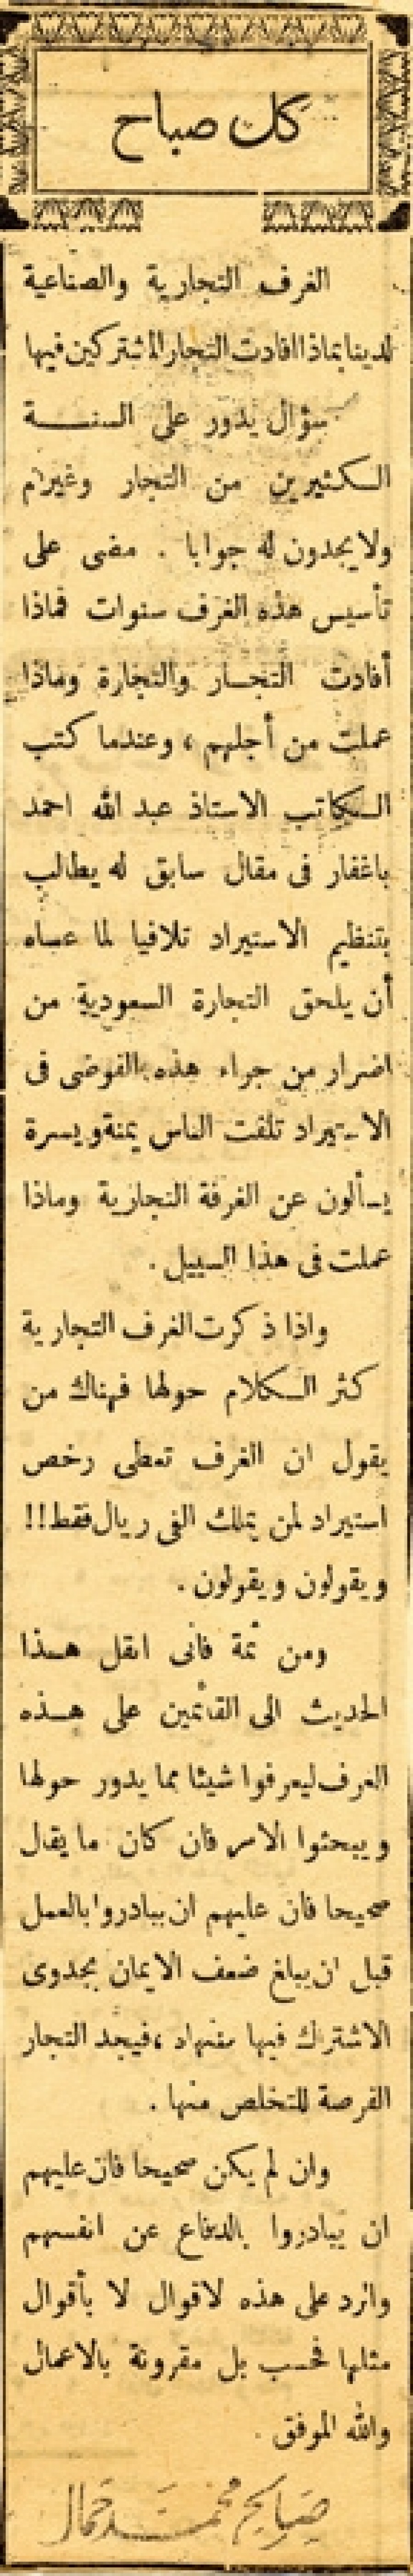 كل صباح
الغرف التجارية والصناعية
لدينا بماذا افادت التجار المشتركين فيها
سؤال يدور على السنـــة
الكثيرين من التجار وغيرهم
ولا يجدون له جوابا . مضى على
تأسيس هذه الغرف سنوات فماذا
أفادت التجـار والتجارة وماذا
عملت من أجلهم ، وعندما كتب
الكاتب الاستاذ عبد الله احمد
باغفار فى مقال سابق له يطالب
بتنظيم الاستيراد تلافيا لما عساه
أن يلحق التجارة السعودية من
اضرار من جراء هذه الفوضى فى
الاستيراد تلفت الناس يمنة ويسرة
يسألون عن الغرفة التجارية وماذا
عملت فى هذا السبيل .
واذا ذكرت الغرف التجارية
كثر الكلام حولها فهناك من
يقول ان الغرف تعطى رخص
استيراد لمن يملك الفى ريال فقط !!
ويقولون ويقولون .
ومن ثمة فانى انقل هـذا
الحديث الى القائمين على هـذه
الغرف ليعرفوا شيئا مما يدور حولها
ويبحثوا الامر فان كان ما يقال
صحيحا فان عليهم ان يبادروا بالعمل
قبل ان يبلغ ضعف الايمان بجدوى
الاشتراك فيها منتهاه ، فيجد التجار
الفرصة للتخلص منها .
وان لم يكن صحيحا فان عليهم
ان يبادروا بالدفاع عن انفسهم
والرد على هذه لاقوال لا بأقوال
مثلها فحسب بل مقرونة بالاعمال
والله الموفق .
صالح محمد جمال